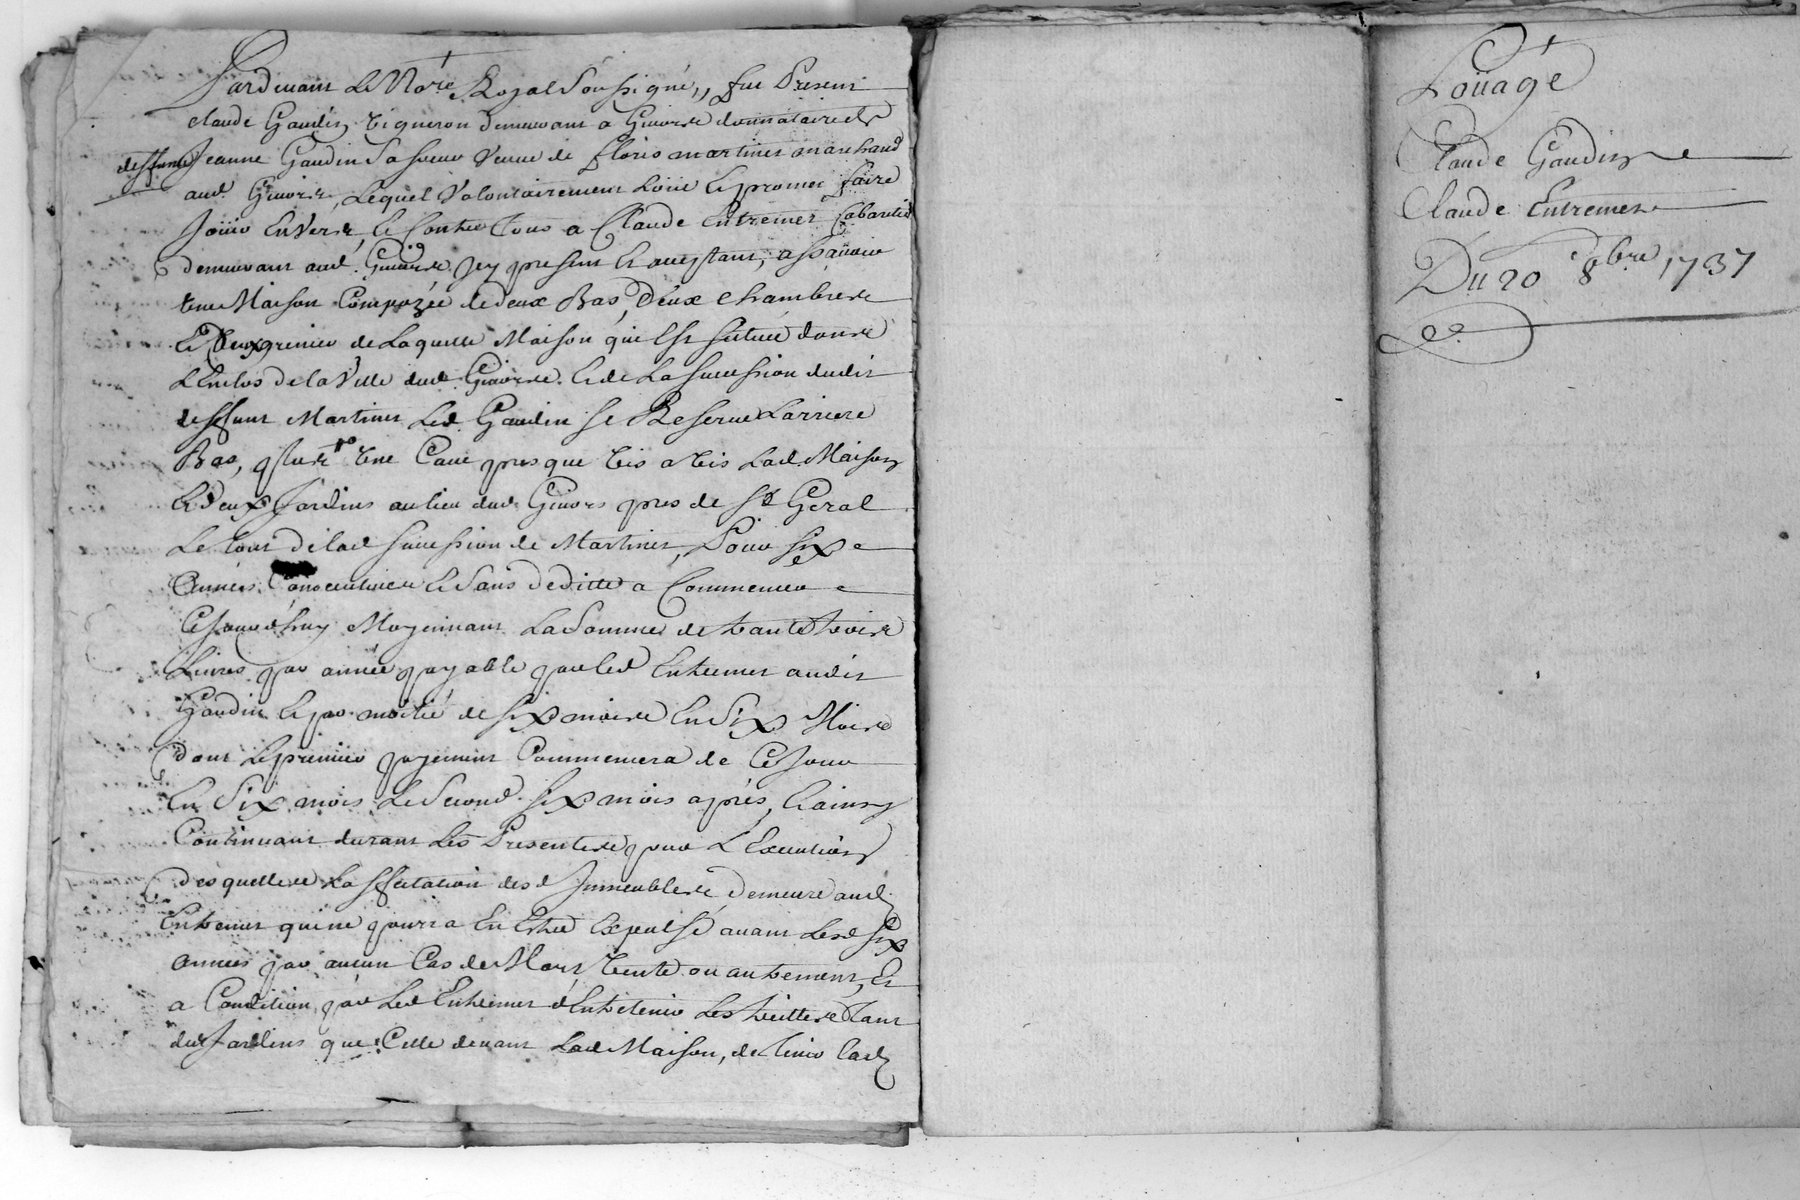 Pardevant Le No.re Royal Soussigné,, fut Present
Claude Gaudin vigneron demeurant a Givors donnataire de
deffunte Jeanne Gaudin Sa soeur veuve de floris martinet marchand
aud. Givors, Lequel Volontairement Loüe et promet faire
Joüir Envers et Contre Tous a Claude Entremet Cabaretier
demeurant aud. Givors Icy present et acceptant, assçavoir
Une Maison Composée de deux Bas, Deux Chambres
et deux grenier de Laquelle Maison qui Est scituée dans
L'Enclos de la Ville dud. Givors et de La succession dudit
deffunt Martinet Led. Gaudin se Reserve Larriere
Bas, Une Cave presque vis a vis Lad. Maison
et Deux Jardins au lieu dud. Givors pres de St Geral
Le tout de lad succession de Martinet, Pour six
Années Consecutives et Sans deditte a Commencer
Ce Jourdhuy Moyennant La Somme de trante trois
Livres par année payable par led Entremet audit
Gaudin et par moitié de six mois En Six Mois
dont Le premier payement Commencera de Ce Jour
En Six mois Le Second six mois après, et ainsy
Continuant durant Les Presentes pour L'Execution
desquelles La ffutation desd Immeubles Demeure aud.
Entremet qui ne pourra En Estre Expulsé avant Lesd six
années par aucun Cas de Mort Vente ou autrement, Et
a Condition par Led Entremet d'Entretenir Les treilles Tant
des Jardins que Celle devant Lad Maison, de Tenir Lad
Loüage
Claude Gaudin
Claude Entremet
Du 20 8bre 1737